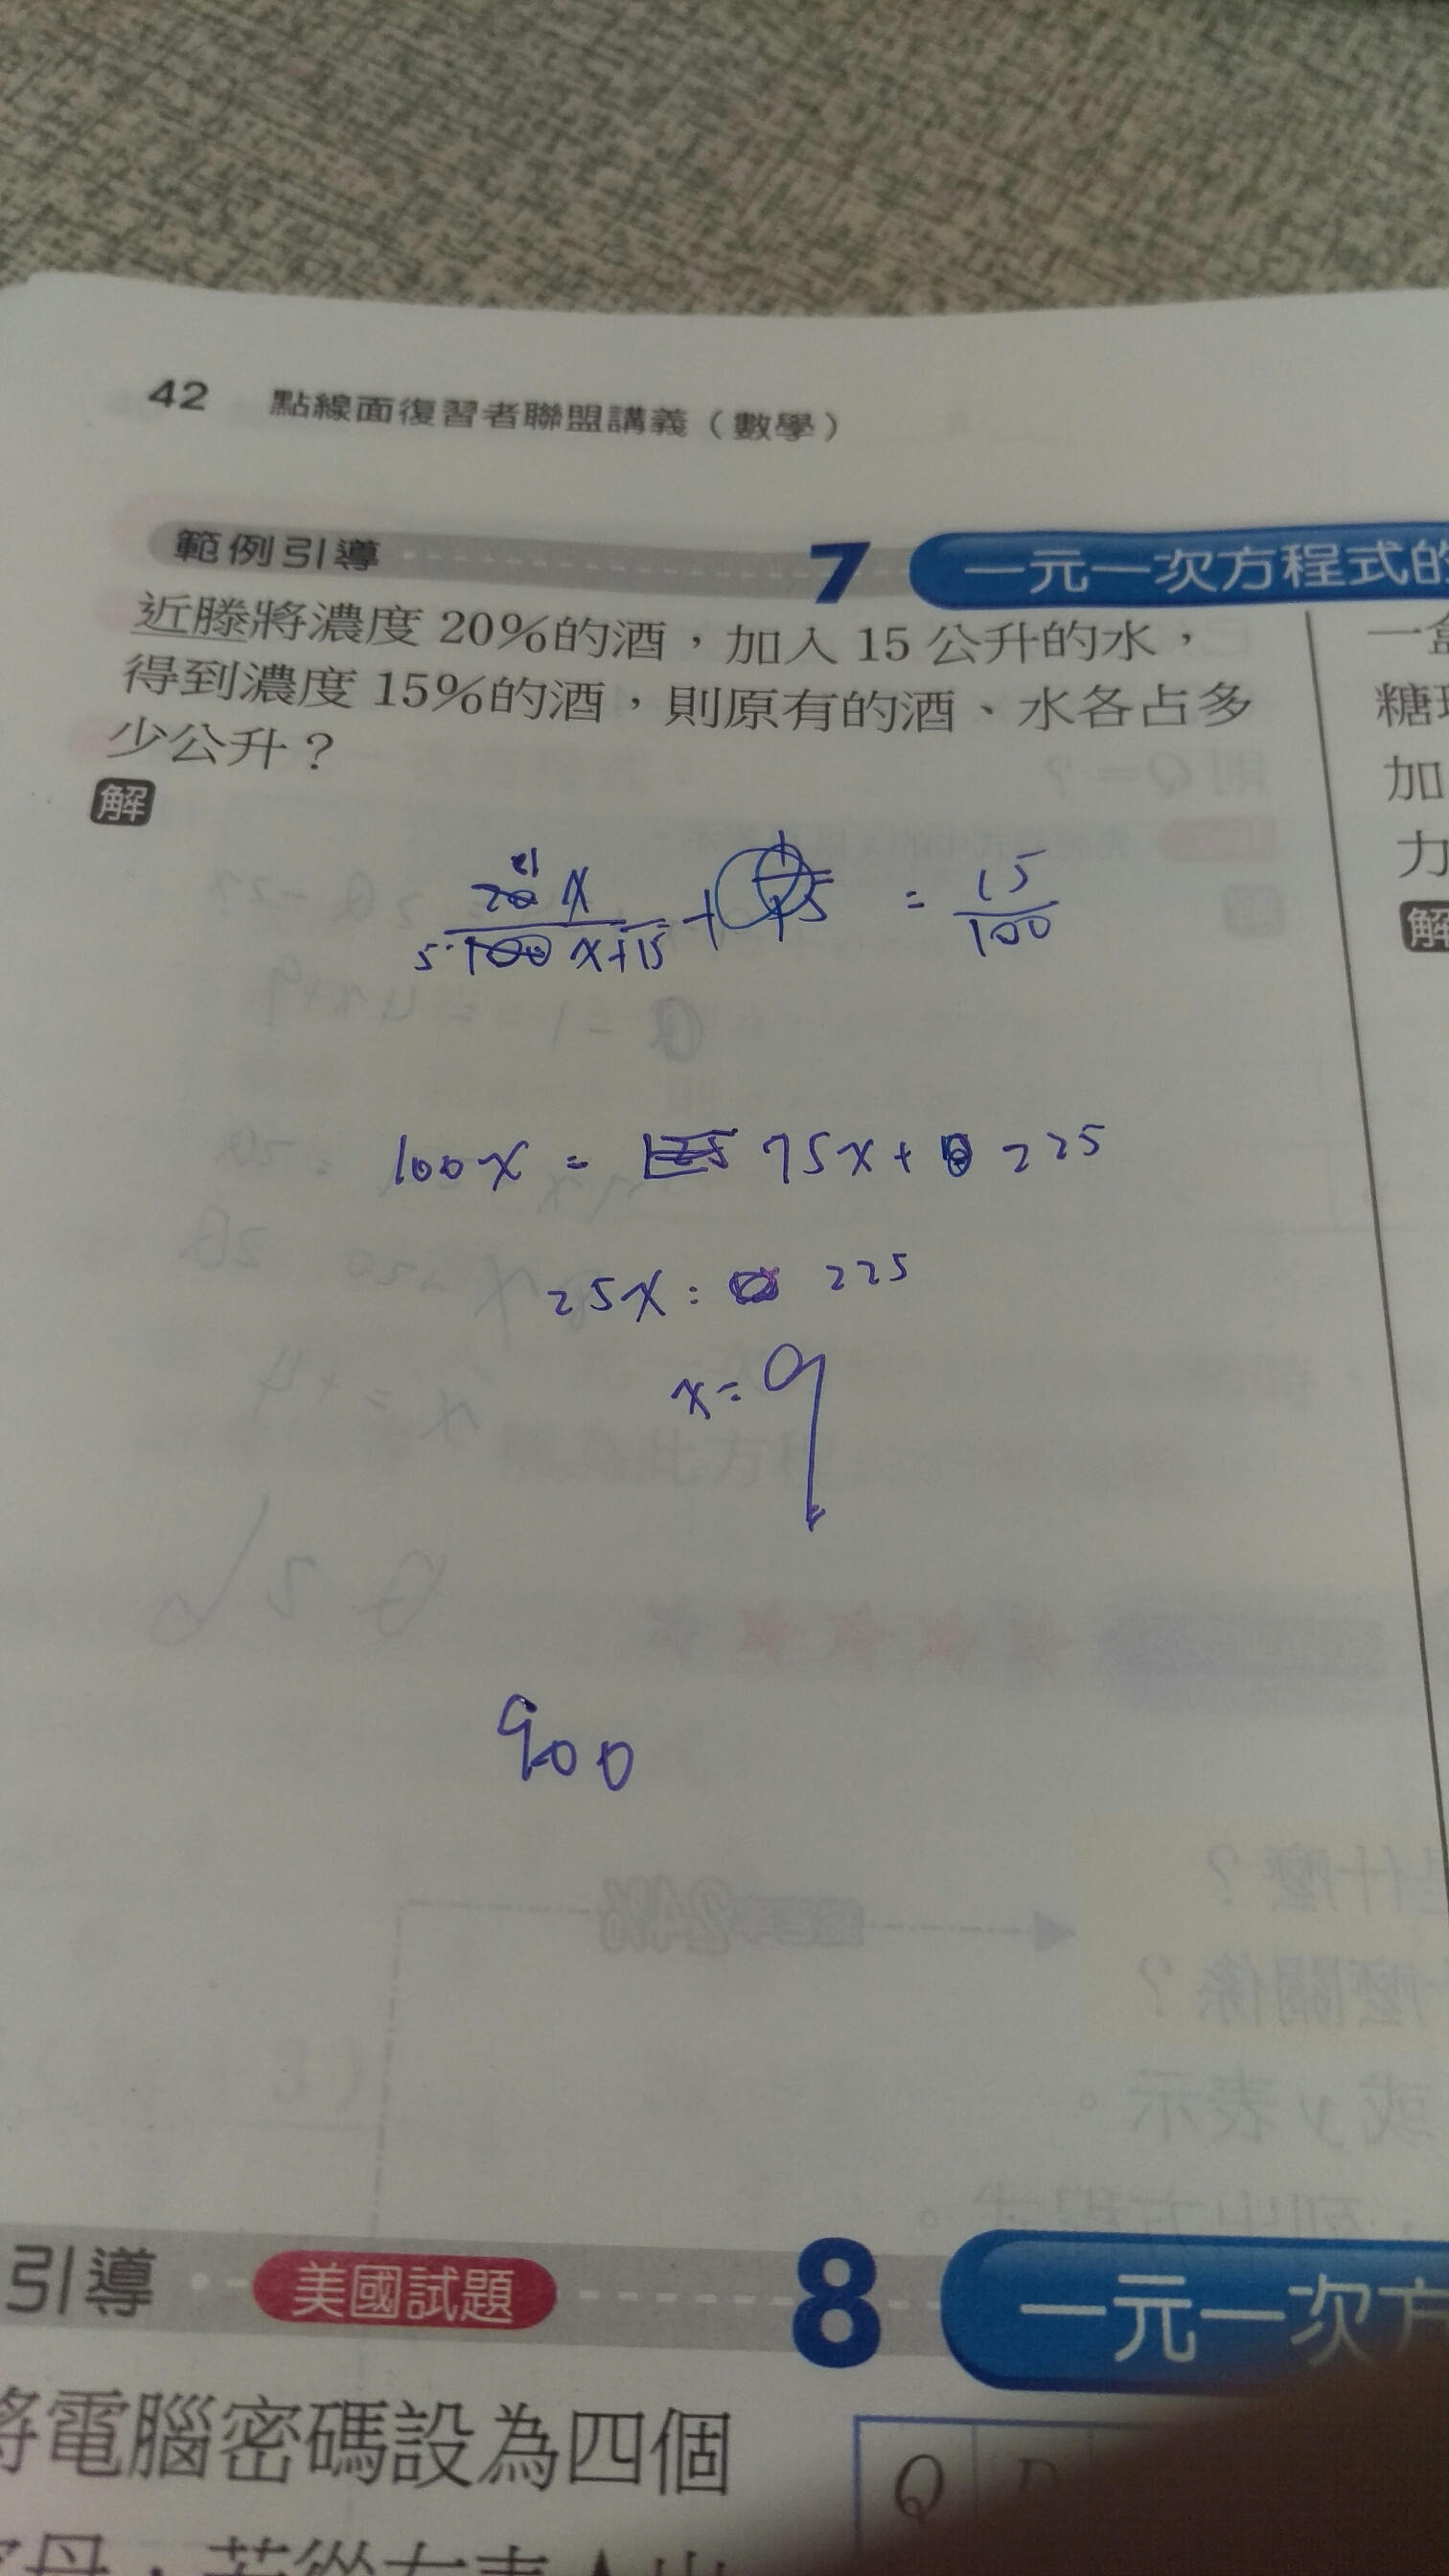 42 點線面復習者聯盟講義（數學）
範例引導 7 一元一次方程式的
近滕將濃度 20%的酒，加入 15 公升的水，
得到濃度 15%的酒，則原有的酒、水各占多
少公升？
解
一盒
糖
加
力
解
x
5 x+15 + = 15/100
100x = 75x + 225
25x = 225
x = 9
900
引導 美國試題 8 一元一次方
將電腦密碼設為四個
Q
字母，若從左表